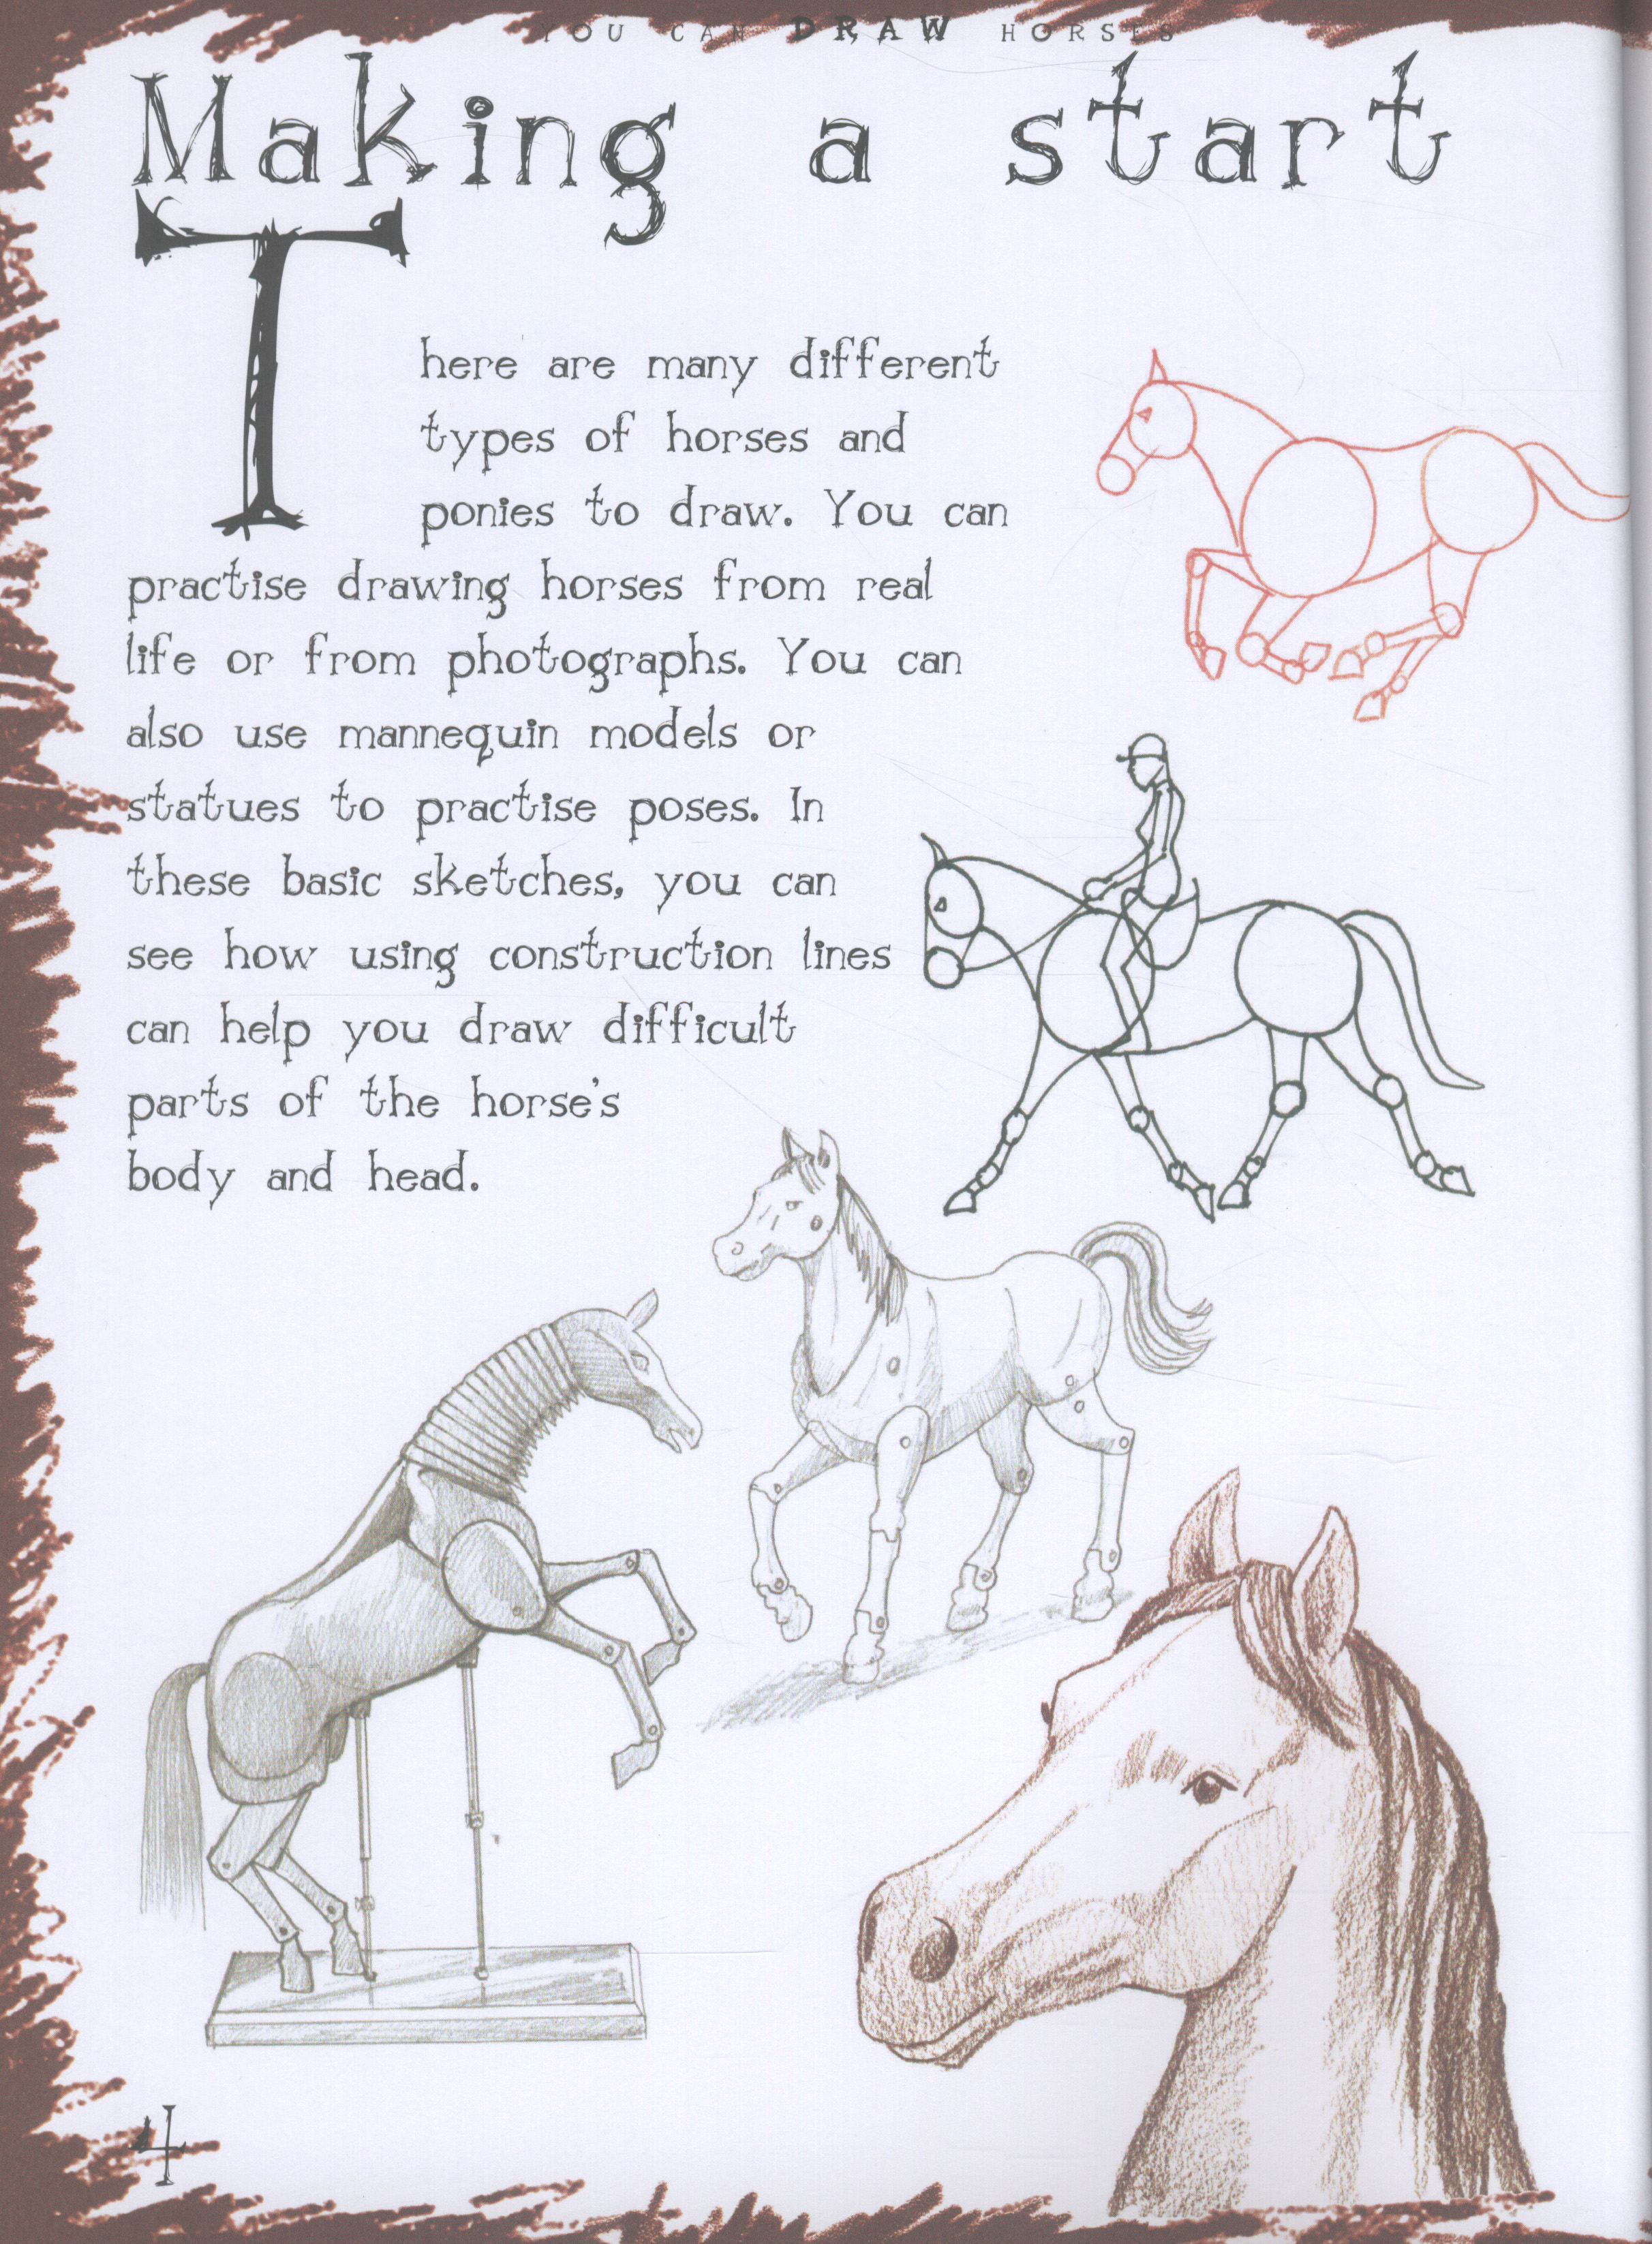 YOU CAN DRAW HORSES
Making a start
There are many different
types of horses and
ponies to draw. You can
practise drawing horses from real
life or from photographs. You can
also use mannequin models or
statues to practise poses. In
these basic sketches, you can
see how using construction lines
can help you draw difficult
parts of the horse's
body and head.
4